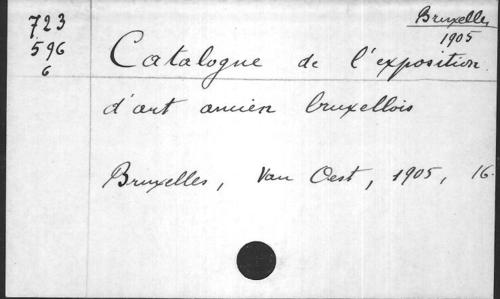 723
596
6
Bruxelles
1905
Catalogue de l'exposition
d'art ancien bruxellois
Bruxelles, Van Oest, 1905, 16-